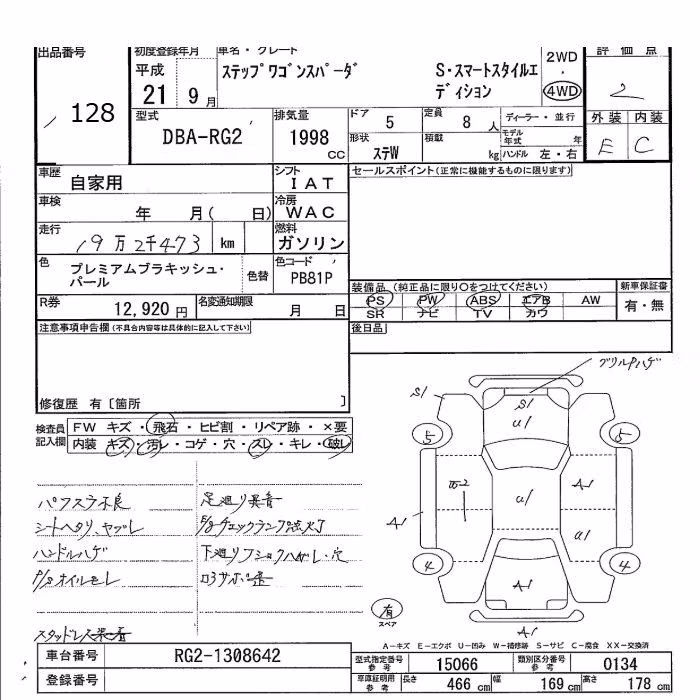 出品番号 初度登録年月 車名・グレード 評価点
128
平成
21 9 月
ステップワゴンスパーダ S・スマートスタイルエ
ディション
2WD
・
4WD
2
型式 排気量 ドア 定員 ディーラー・並行 外装 内装
DBA-RG2 1998 CC 5 8 人
E C
形状 積載 モデル年式 年
ステW kg ハンドル 左・右
車歴 自家用 シフト IAT
セールスポイント(正常に機能するものに限ります)
車検 年 月( 日) 冷房 WAC
走行 19万2千473 km 燃料 ガソリン
色 プレミアムブラキッシュ・
パール
色替 色コード PB81P
装備品(純正品に限り○をつけてください) 新車保証書
PS PW ABS エアB AW 有・無
SR ナビ TV カワ
R券 12,920 円 名変通知期限 月 日
注意事項申告欄(不具合内容等は具体的に記入して下さい) 後日品
修復歴 有〔箇所 〕
検査員
記入欄
FW キズ・飛石・ヒビ割・リペア跡・×要
内装 キズ・汚レ・コゲ・穴・スレ・キレ・破レ
パワスラ不良
シートヘタリ、ヤブレ
ハンドルハゲ
P/Sオイルモレ
足廻り異音
E/gチェックランプ点灯
スタッドレス
S1
S1
U1
5
5
U1
A1
A1
U1
4
4
A1
A1
有
スペア
A-キズ E-エクボ U-凹み W-補修跡 S-サビ C-腐食 XX-交換済
車台番号 RG2-1308642
登録番号
型式指定番号 参考 15066 類別区分番号 参考 0134
車庫証明用 参考 長さ 466 cm 幅 169 cm 高さ 178 cm